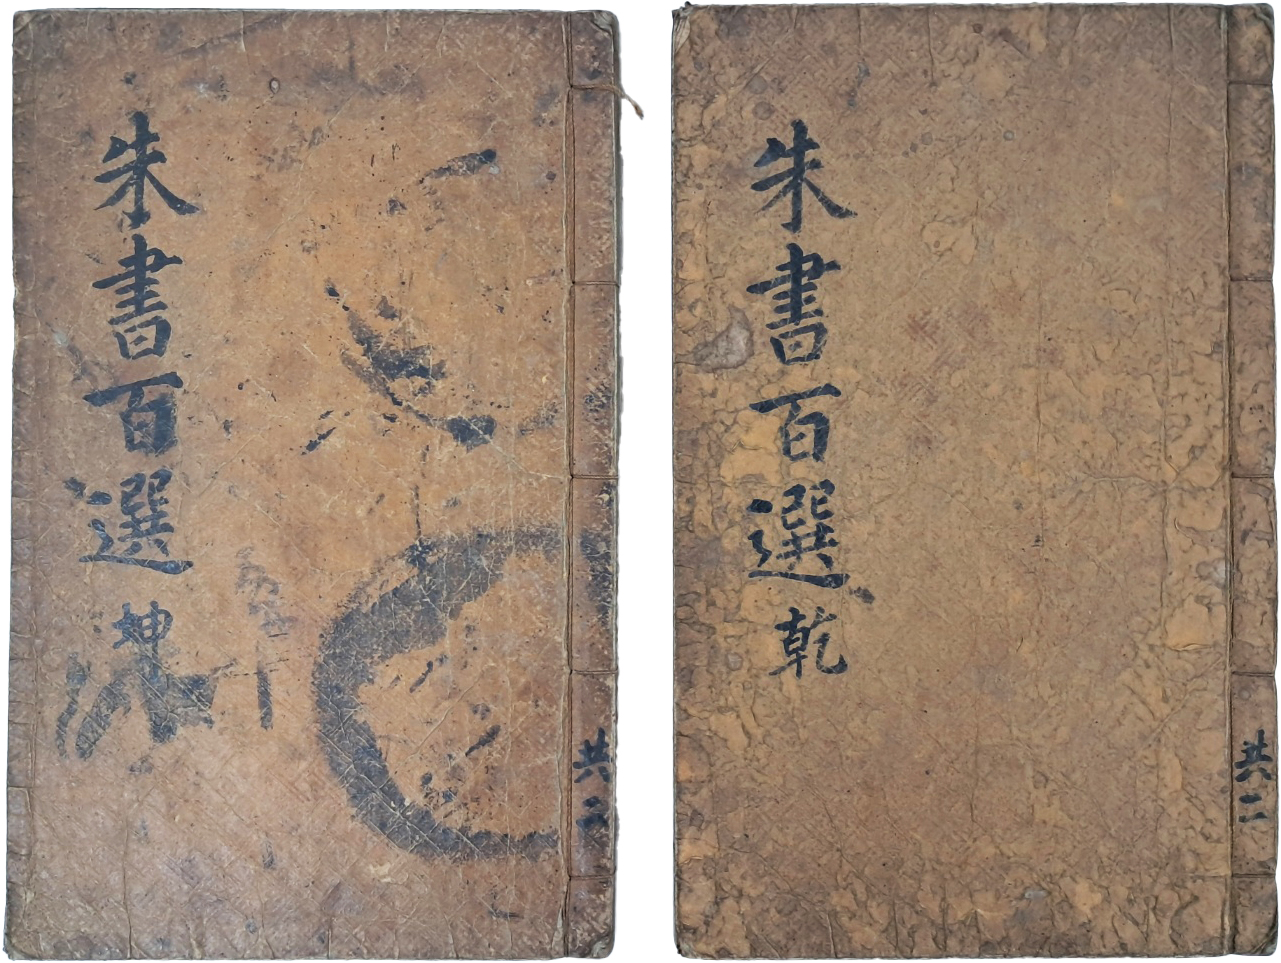 朱書百選 乾
共二
朱書百選 坤
共二